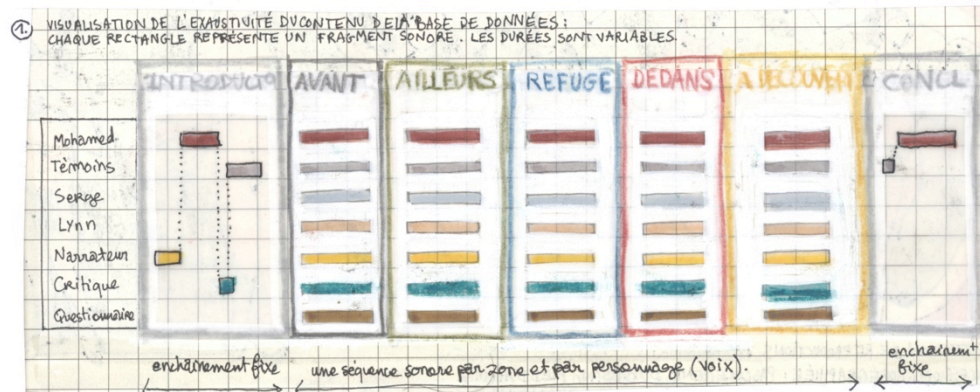 1. VISUALISATION DE L'EXAUSTIVITÉ DU CONTENU DE LA BASE DE DONNÉES :
CHAQUE RECTANGLE REPRÉSENTE UN FRAGMENT SONORE. LES DURÉES SONT VARIABLES.
INTRODUCTO AVANT AILLEURS REFUGE DEDANS A DECOUVERT CONCL
Mohamed
Témoins
Serge
Lynn
Narrateur
Critique
Questionnaire
enchaînement fixe
une séquence sonore par zone et par personnage (voix).
enchainemt
fixe